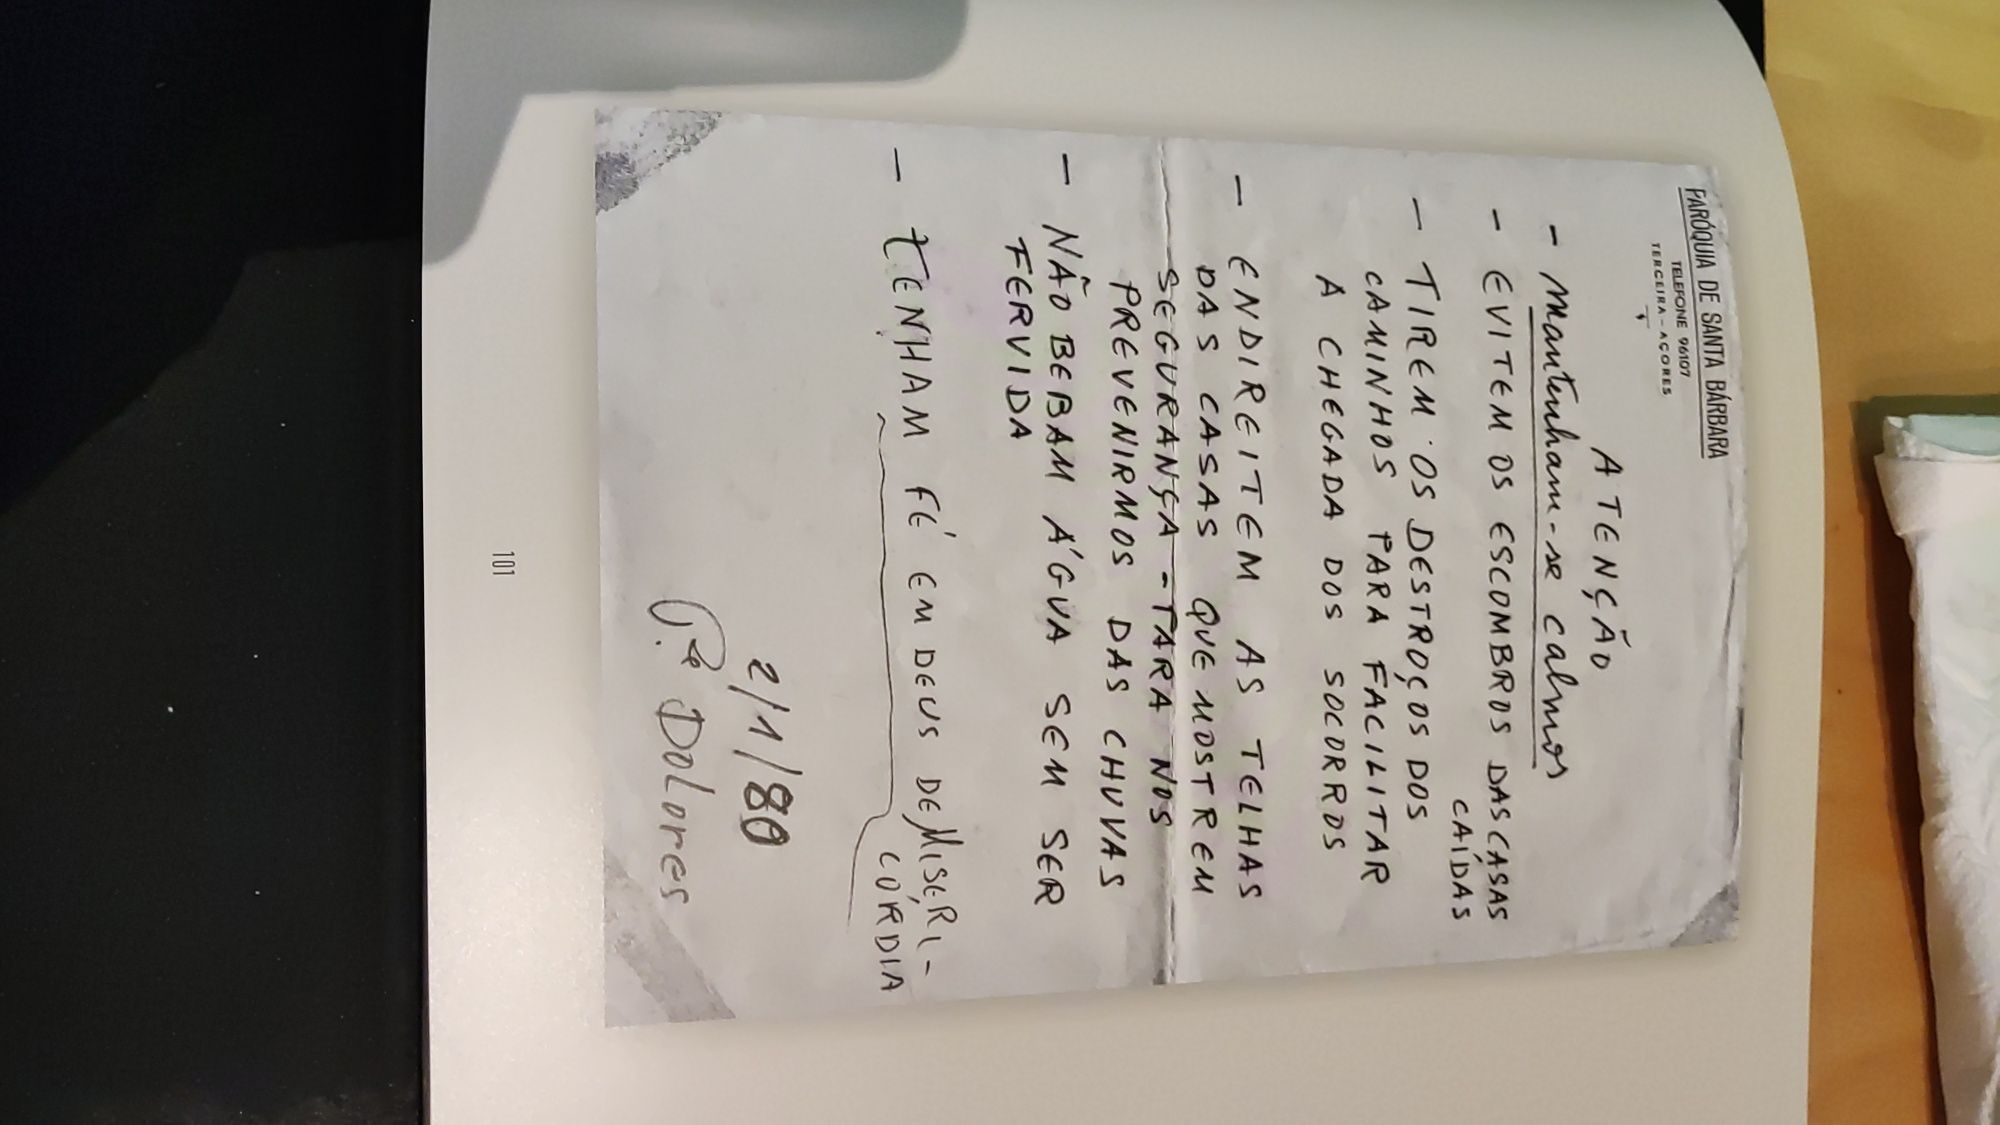 PARÓQUIA DE SANTA BÁRBARA
TELEFONE 96107
TERCEIRA - AÇORES
ATENÇÃO
- Mantenham-se calmos
- EVITEM OS ESCOMBROS DAS CASAS
CAÍDAS
- TIREM OS DESTROÇOS DOS
CAMINHOS PARA FACILITAR
A CHEGADA DOS SOCORROS
- ENDIREITEM AS TELHAS
DAS CASAS QUE MOSTREM
SEGURANÇA - PARA NOS
PREVENIRMOS DAS CHUVAS
- NÃO BEBAM ÁGUA SEM SER
FERVIDA
- TENHAM FÉ EM DEUS DE MISERI-
CÓRDIA
2/1/80
P.e Dolores
101